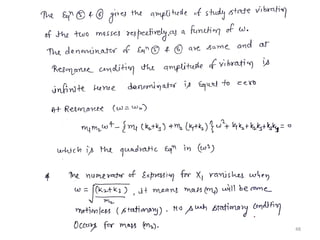 The Eqn ⑤ & ⑥ gives the amplitude of study state vibration
of the two masses respectively, as a function of ω.
The denominator of Eqn ⑤ & ⑥ are same and at
Resonance condition the amplitude of vibration is
infinite hence denominator is Equal to zero
At Resonance (ω = ωn)
m1m2ω⁴ - {m1 (k2+k3) + m2 (k1+k2)} ω² + k1k2 + k2k3 + k3k1 = 0
which is the quadratic Eqn in (ω²)
* The numerator of Expression for X1 vanishes when
ω = √(k2+k3)/m2 . It means mass (m1) will become
motionless (stationary). No such stationary condition
Occurs for mass (m2).
66